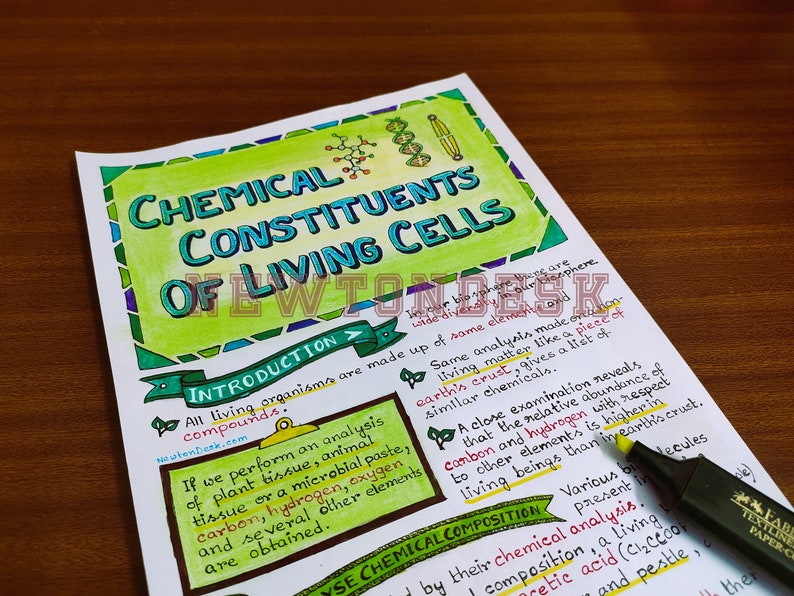 CHEMICAL
CONSTITUENTS
OF LIVING CELLS
NEWTONDESK
INTRODUCTION >
In our biosphere, there are
wide diversity in our biosphere.
All living organisms are made up of same elements and
compounds.
NewtonDesk.com
If we perform an analysis
of plant tissue, animal
tissue or a microbial paste,
carbon, hydrogen, oxygen
and several other elements
are obtained.
Same analysis made on a non-
living matter like a piece of
earth's crust, gives a list of
similar chemicals.
A close examination reveals
that the relative abundance of
carbon and hydrogen with respect
to other elements is higher in
living beings than in earth's crust.
Various
present in
CHEMICAL COMPOSITION
by their chemical analysis.
composition, a living
acetic acid
and pestle,
FABER
TEXTLINER
PAPER